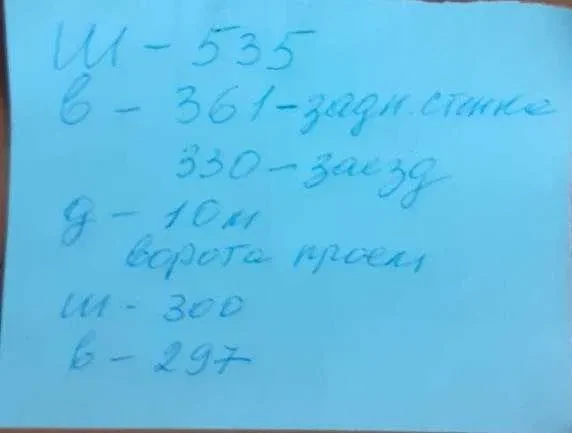 Ш - 535
в - 361 - задн. стенка
330 - заезд
д - 10 м
ворота проем
ш - 300
в - 297